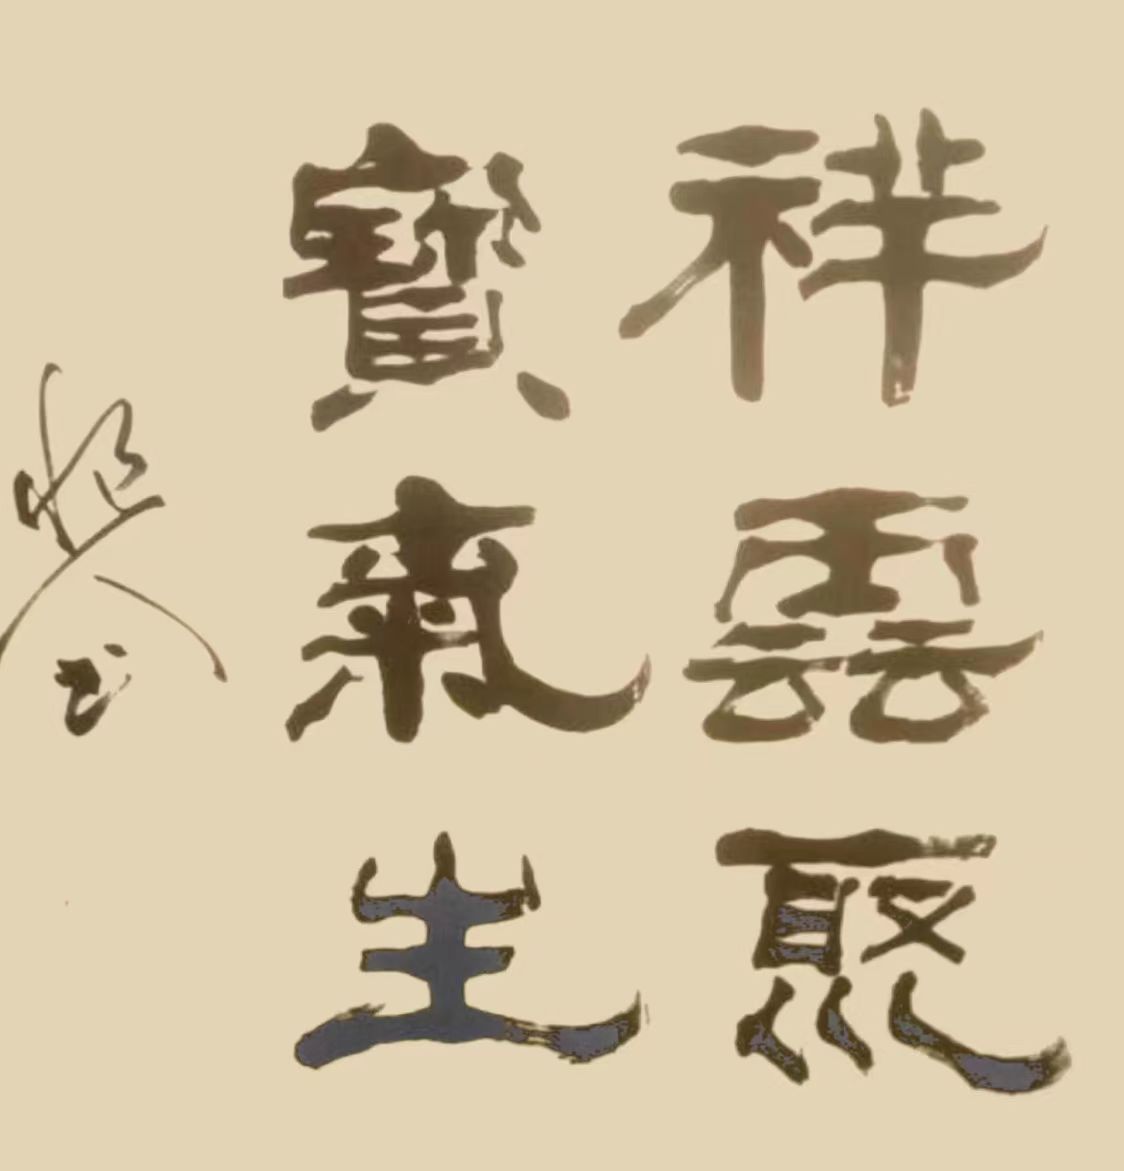 祥雲聚
寶氣生